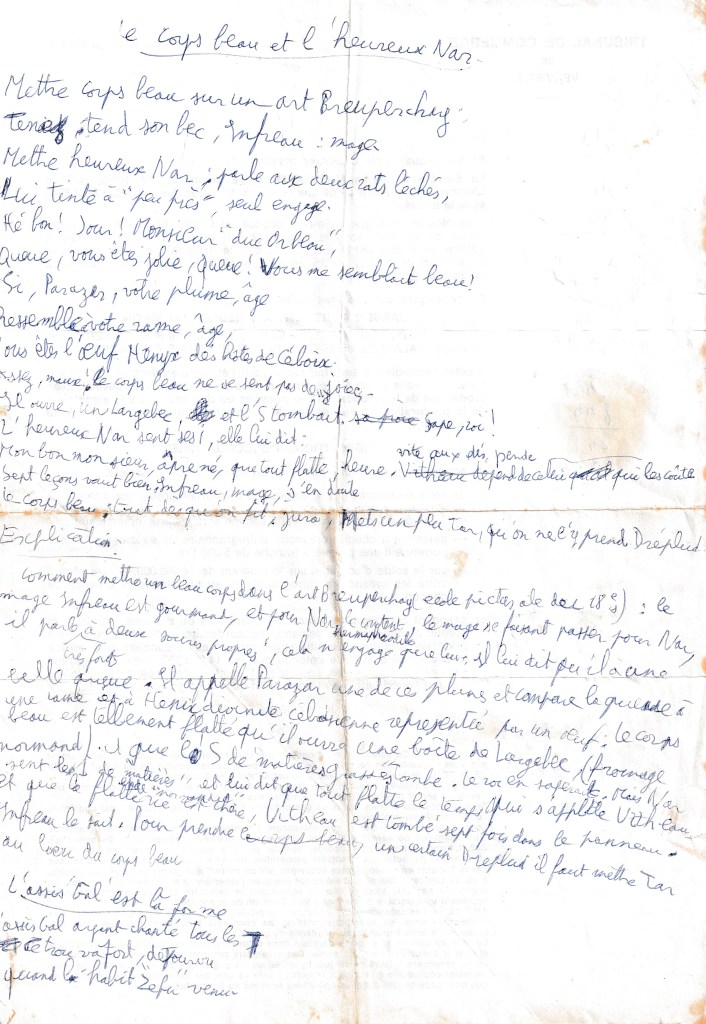 le corps beau et l'heureux Nar
Methre corps beau sur un art Breuperchay.
tend son bec, Infreau : mage
Methre heureux Nar, parle aux deux rats léchés,
Lui tinté à "peu près", seul engage.
Hé bon! Jour! Monsieur "duc Orbeau",
Queue, vous êtes jolie, queue! Vous me semblait beau!
Si, Parazar, votre plume, âge
ressemble à votre rame, âge,
Vous êtes l'œuf Hényx des hôtes de Céboix.
Assez, maux! le corps beau ne se sent pas de joies,
Il ouvre, un Largebec, et l'S tombait. sa proie Sape, roi!
L'heureux Nar sent ses!, elle lui dit:
Mon bon mon sieur, âpre né, que tout flatte, heure. vite aux dés, pende
Vitheau dépend de celui qui les coûte
Sept leçons vaut bien Infreau, mage, s'en doute
le corps beau, tut de que on fit, jura, Mets un plu Tar, qu'on ne l'y prend Dréplud.
Explication.
Comment methre un beau corps dans l'art Breuperchay (école picturale du 18e S) : le
mage Infreau est gourmand, et pour Nar le content, le mage se faisant passer pour Nar,
il parle à deux souris propres, cela n'engage que lui. Il lui dit qu'il a une
très forte
hermaphrodite
belle queue. Il appelle Parazar une de ces plumes et compare la queue à
une rame et à Hénix divinité céboisienne représentée par un œuf. le corps
beau est tellement flatté qu'il ouvre une boîte de Largebec (fromage
normand). et que le S de matières grasses tombe. Le roi en sape. Mais Nar
sent les de "matières" et lui dit que tout flatte le temps qui s'appelle Vitheau
et que la flatterie est chère, Vitheau est tombé sept fois dans le panneau.
Infreau le sait. Pour prendre le corps beau, un certain Dréplud il faut mettre Tar
au lieu du corps beau
L'assis Gal est la forme
l'assis Gal argent chanté tous les T
se trou va fort, dépourvu
quand la habit Zefu venu